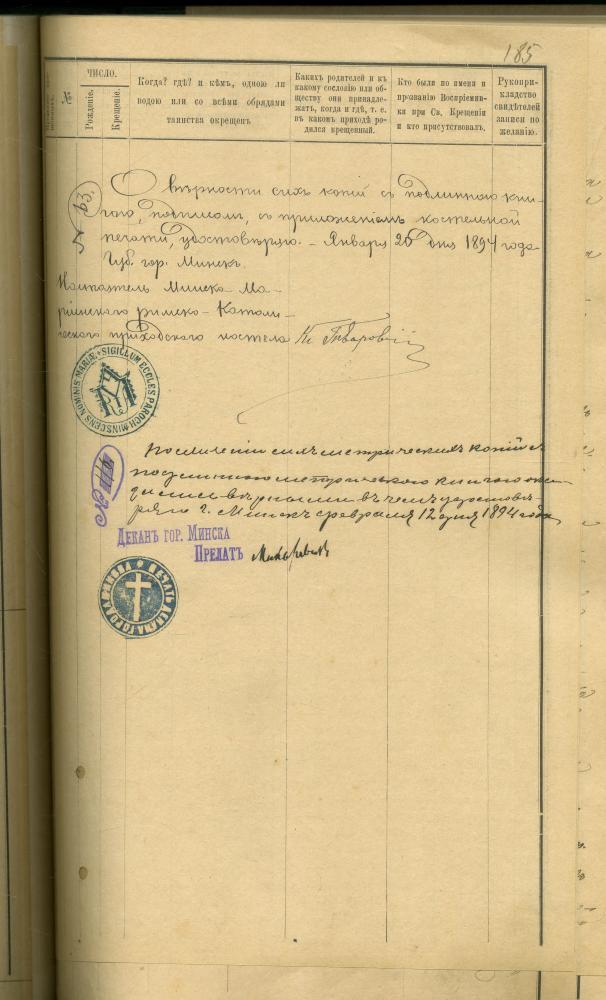 185
№
ЧИСЛО.
Рожденіе.
Крещеніе.
Когда? гдѣ? и кѣмъ, одною ли
водою или со всѣми обрядами
таинства окрещенъ
Какихъ родителей и къ
какому сословію или об-
ществу они принадле-
жатъ, когда и гдѣ, т. е.
въ какомъ приходѣ ро-
дился крещенный.
Кто были по имени и
прозванію Воспріемни-
ки при Св. Крещеніи
и кто присутствовалъ.
Рукопри-
кладство
свидѣтелей
записи по
желанію.
№ 63.
О вѣрности сихъ копій съ подлинною кни-
гою, подписомъ, съ приложеніемъ костельной
печати, удостовѣряю. - Января 20 дня 1894 года
Губ. гор. Минскъ.
Настоятель Минско-Ма-
ріинскаго римско-Катол-
ическаго приходскаго костела Кс.
SIGILLUM ECCLES PAROCH MINSCENS NOMINIS MARIÆ
По сличеніи сихъ метрическихъ копій съ
подлинною метрическою книгою ока-
зались вѣрными въ чемъ удостовѣ-
ряю г. Минскъ февраля 12 дня 1894 года
ДЕКАНЪ ГОР. МИНСКА
ПРЕЛАТЪ
ПЕЧАТЬ ДЕКАНА ГОРОДА МИНСКА